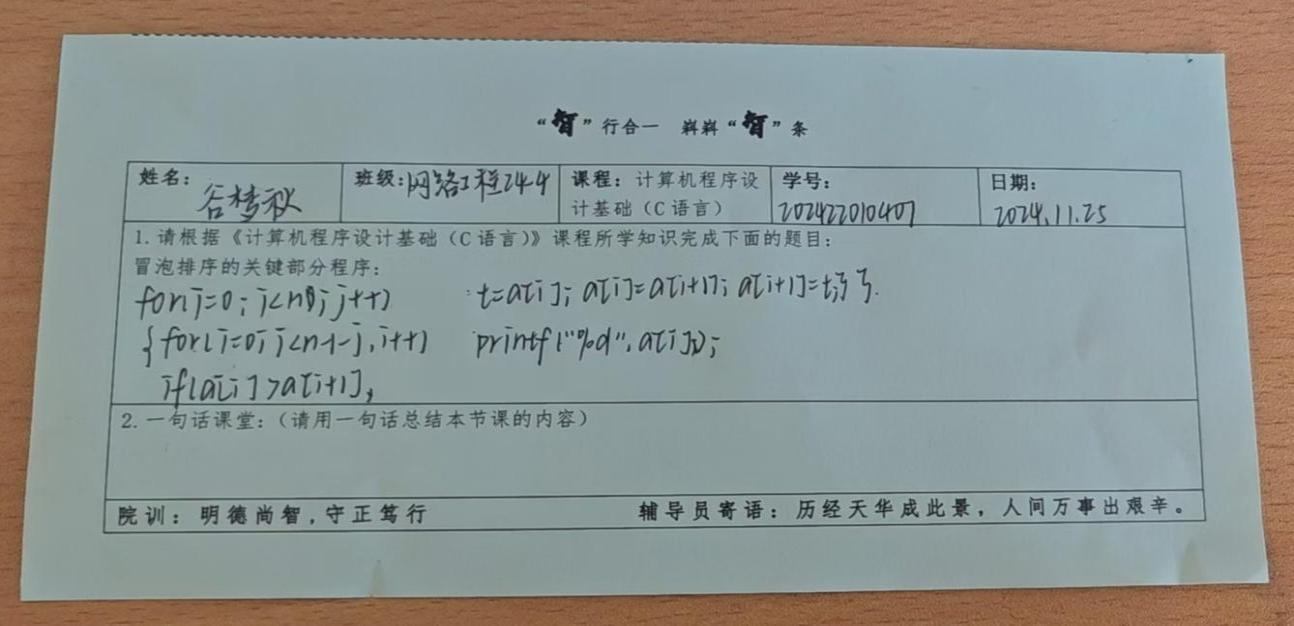 “智”行合一 斟斟“智”条
姓名：谷梦秋 班级：网络工程244 课程：计算机程序设计基础（C 语言） 学号：202422010407 日期：2024.11.25
1.请根据《计算机程序设计基础（C 语言）》课程所学知识完成下面的题目：
冒泡排序的关键部分程序：
for(j=0; j<n; j++)
{for(i=0; i<n-1-j, i++)
if(a[i]>a[i+1],
t=a[i]; a[i]=a[i+1]; a[i+1]=t;}}.
printf("%d", a[i]);
2.一句话课堂：（请用一句话总结本节课的内容）
院训：明德尚智,守正笃行 辅导员寄语：历经天华成此景，人间万事出艰辛。